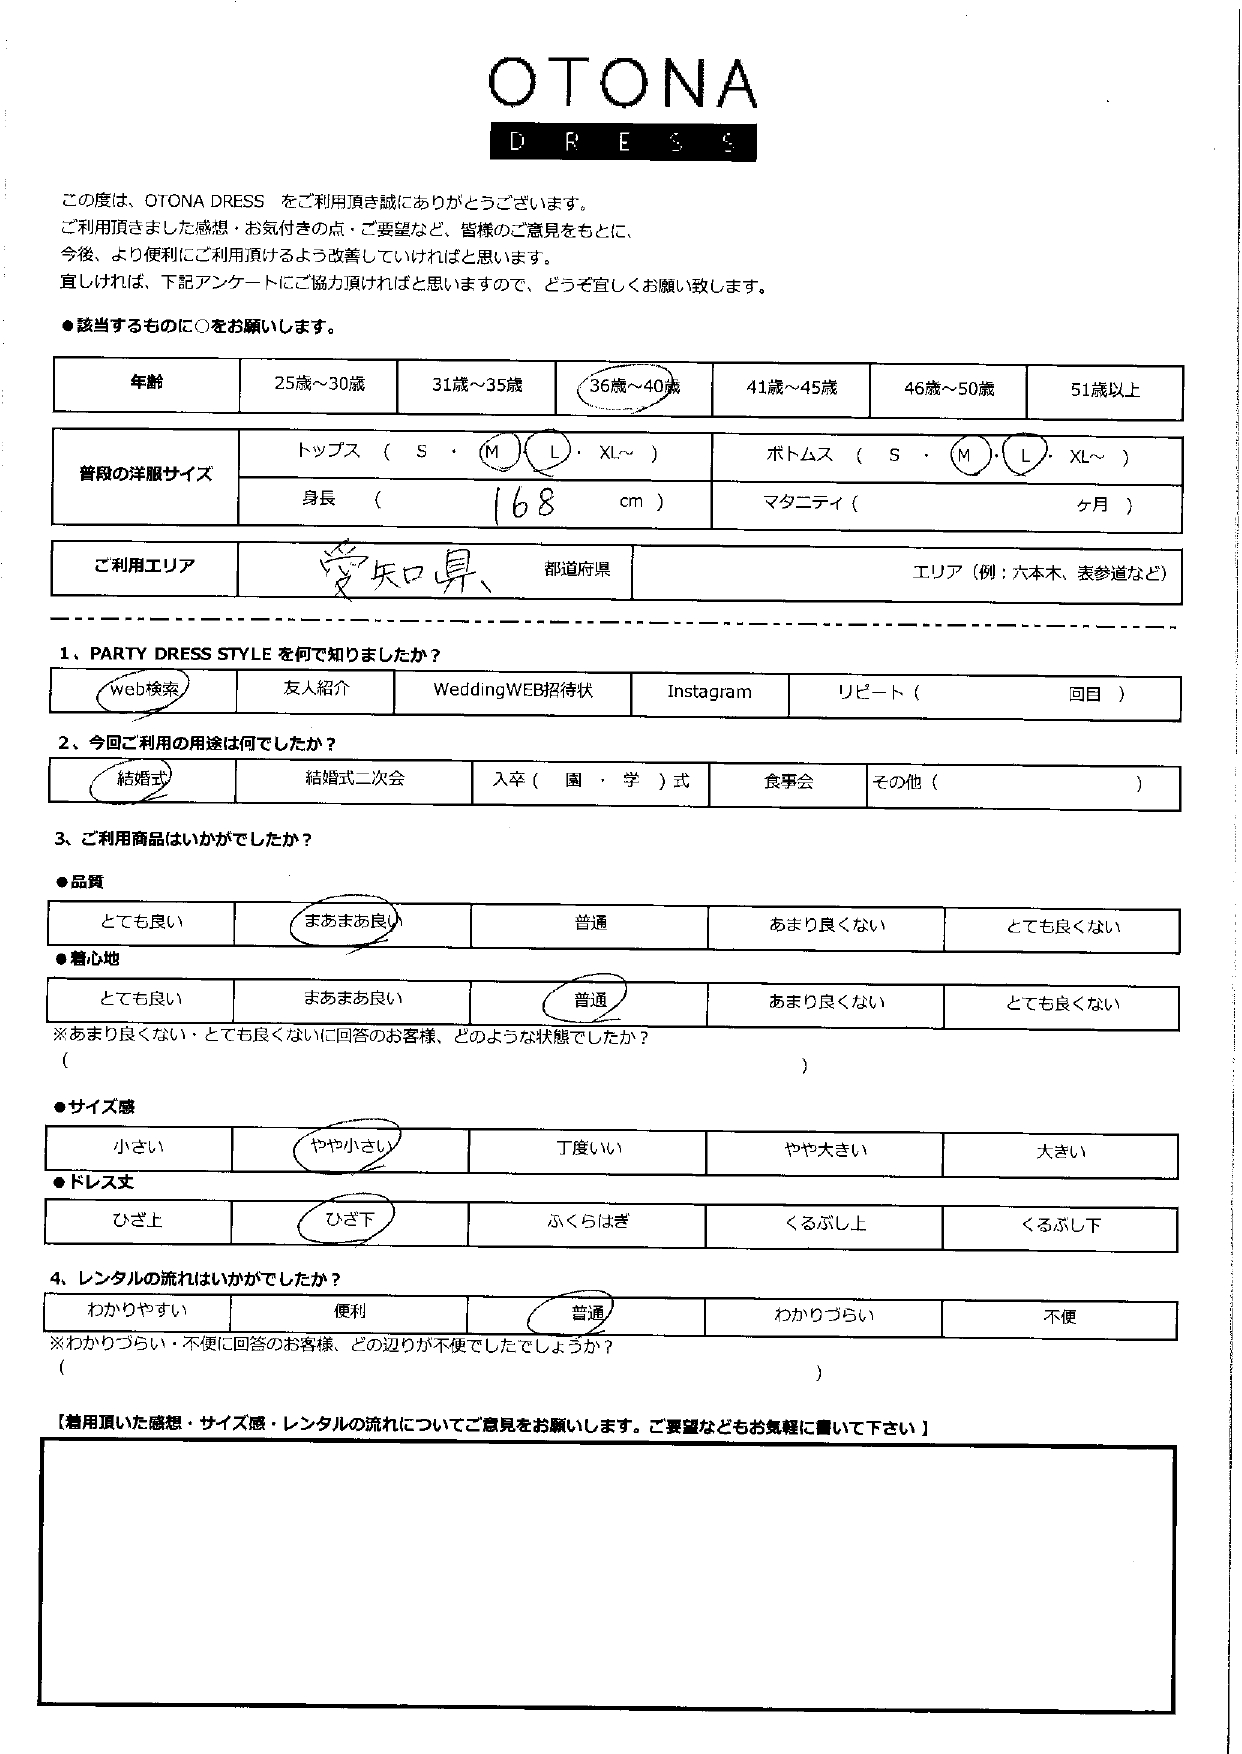 OTONA
DRESS
この度は、OTONA DRESS をご利用頂き誠にありがとうございます。
ご利用頂きました感想・お気付きの点・ご要望など、皆様のご意見をもとに、
今後、より便利にご利用頂けるよう改善していければと思います。
宜しければ、下記アンケートにご協力頂ければと思いますので、どうぞ宜しくお願い致します。
●該当するものに○をお願いします。
年齢 25歳～30歳 31歳～35歳 36歳～40歳 41歳～45歳 46歳～50歳 51歳以上
普段の洋服サイズ トップス ( S ・ M ・ L ・ XL～ ) ボトムス ( S ・ M ・ L ・ XL～ )
身長 ( 168 cm ) マタニティ ( ヶ月 )
ご利用エリア 愛知県、 都道府県 エリア（例：六本木、表参道など）
1、PARTY DRESS STYLE を何で知りましたか？
web検索 友人紹介 WeddingWEB招待状 Instagram リピート ( 回目 )
2、今回ご利用の用途は何でしたか？
結婚式 結婚式二次会 入卒 ( 園 ・ 学 ) 式 食事会 その他 ( )
3、ご利用商品はいかがでしたか？
●品質
とても良い まあまあ良い 普通 あまり良くない とても良くない
●着心地
とても良い まあまあ良い 普通 あまり良くない とても良くない
※あまり良くない・とても良くないに回答のお客様、どのような状態でしたか？
( )
●サイズ感
小さい やや小さい 丁度いい やや大きい 大きい
●ドレス丈
ひざ上 ひざ下 ふくらはぎ くるぶし上 くるぶし下
4、レンタルの流れはいかがでしたか？
わかりやすい 便利 普通 わかりづらい 不便
※わかりづらい・不便に回答のお客様、どの辺りが不便でしたでしょうか？
( )
【着用頂いた感想・サイズ感・レンタルの流れについてご意見をお願いします。ご要望などもお気軽に書いて下さい 】